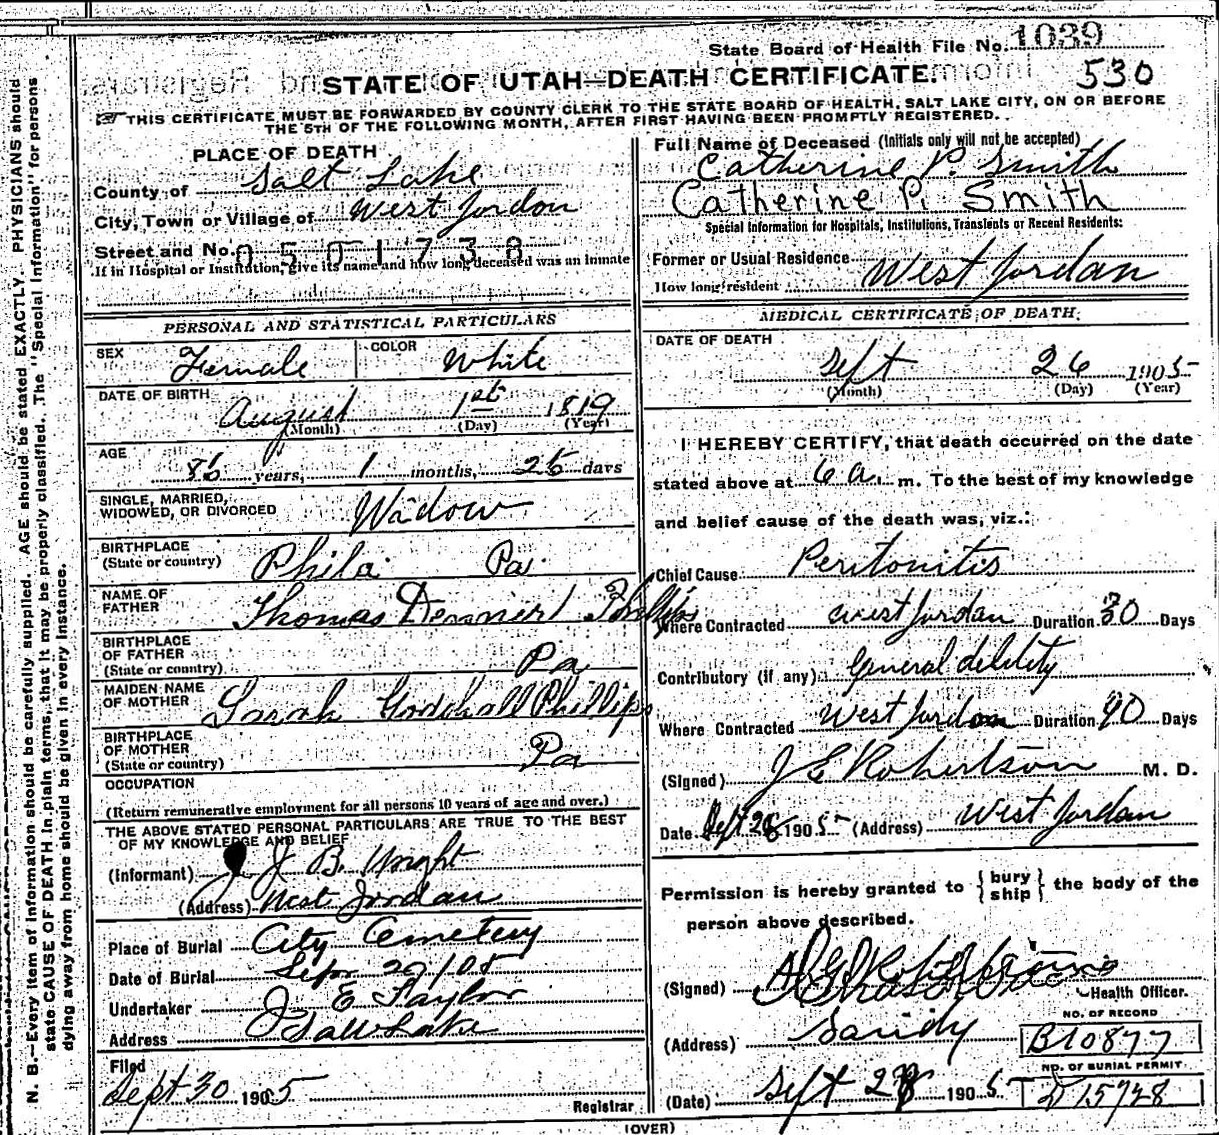 State Board of Health File No. 1039
530
STATE OF UTAH—DEATH CERTIFICATE.
THIS CERTIFICATE MUST BE FORWARDED BY COUNTY CLERK TO THE STATE BOARD OF HEALTH, SALT LAKE CITY, ON OR BEFORE
THE 5TH OF THE FOLLOWING MONTH, AFTER FIRST HAVING BEEN PROMPTLY REGISTERED.
N. B.—Every item of information should be carefully supplied. AGE should be stated EXACTLY. PHYSICIANS should
state CAUSE OF DEATH in plain terms, that it may be properly classified. The "Special Information" for persons
dying away from home should be given in every instance.
PLACE OF DEATH
County of Salt Lake
City, Town or Village of West Jordon
Street and No. 0501738
If in Hospital or Institution, give its name and how long deceased was an inmate
PERSONAL AND STATISTICAL PARTICULARS
SEX Female COLOR White
DATE OF BIRTH August 1st 1819
(Month) (Day) (Year)
AGE 86 years, 1 months, 26 days
SINGLE, MARRIED,
WIDOWED, OR DIVORCED Widow
BIRTHPLACE
(State or country) Phila Pa.
NAME OF
FATHER Thomas Phillips
BIRTHPLACE
OF FATHER
(State or country) Pa
MAIDEN NAME
OF MOTHER Sarah Godshall Phillips
BIRTHPLACE
OF MOTHER
(State or country) Pa
OCCUPATION
(Return remunerative employment for all persons 10 years of age and over.)
THE ABOVE STATED PERSONAL PARTICULARS ARE TRUE TO THE BEST
OF MY KNOWLEDGE AND BELIEF
(Informant) J B Wright
(Address) West Jordan
Place of Burial City Cemetery
Date of Burial Sept 29/05
Undertaker J E Taylor
Address Salt Lake
Filed
Sept 30 1905
Registrar
Full Name of Deceased (Initials only will not be accepted)
Catherine P. Smith
Catherine P. Smith
Special Information for Hospitals, Institutions, Transients or Recent Residents:
Former or Usual Residence West Jordan
How long resident
MEDICAL CERTIFICATE OF DEATH.
DATE OF DEATH
Sept 26 1905
(Month) (Day) (Year)
I HEREBY CERTIFY, that death occurred on the date
stated above at 6 a. m. To the best of my knowledge
and belief cause of the death was, viz.:
Chief Cause Peritonitis
Where Contracted West Jordan Duration 30 Days
Contributory (if any) General debility
Where Contracted West Jordan Duration 90 Days
(Signed) J E Robertson M. D.
Date Sept 28 1905 (Address) West Jordan
Permission is hereby granted to {bury ship} the body of the
person above described.
(Signed)
Health Officer.
(Address) Sandy
(Date) Sept 28 1905
NO. OF RECORD
B10877
NO. OF BURIAL PERMIT
D 15728
(OVER)